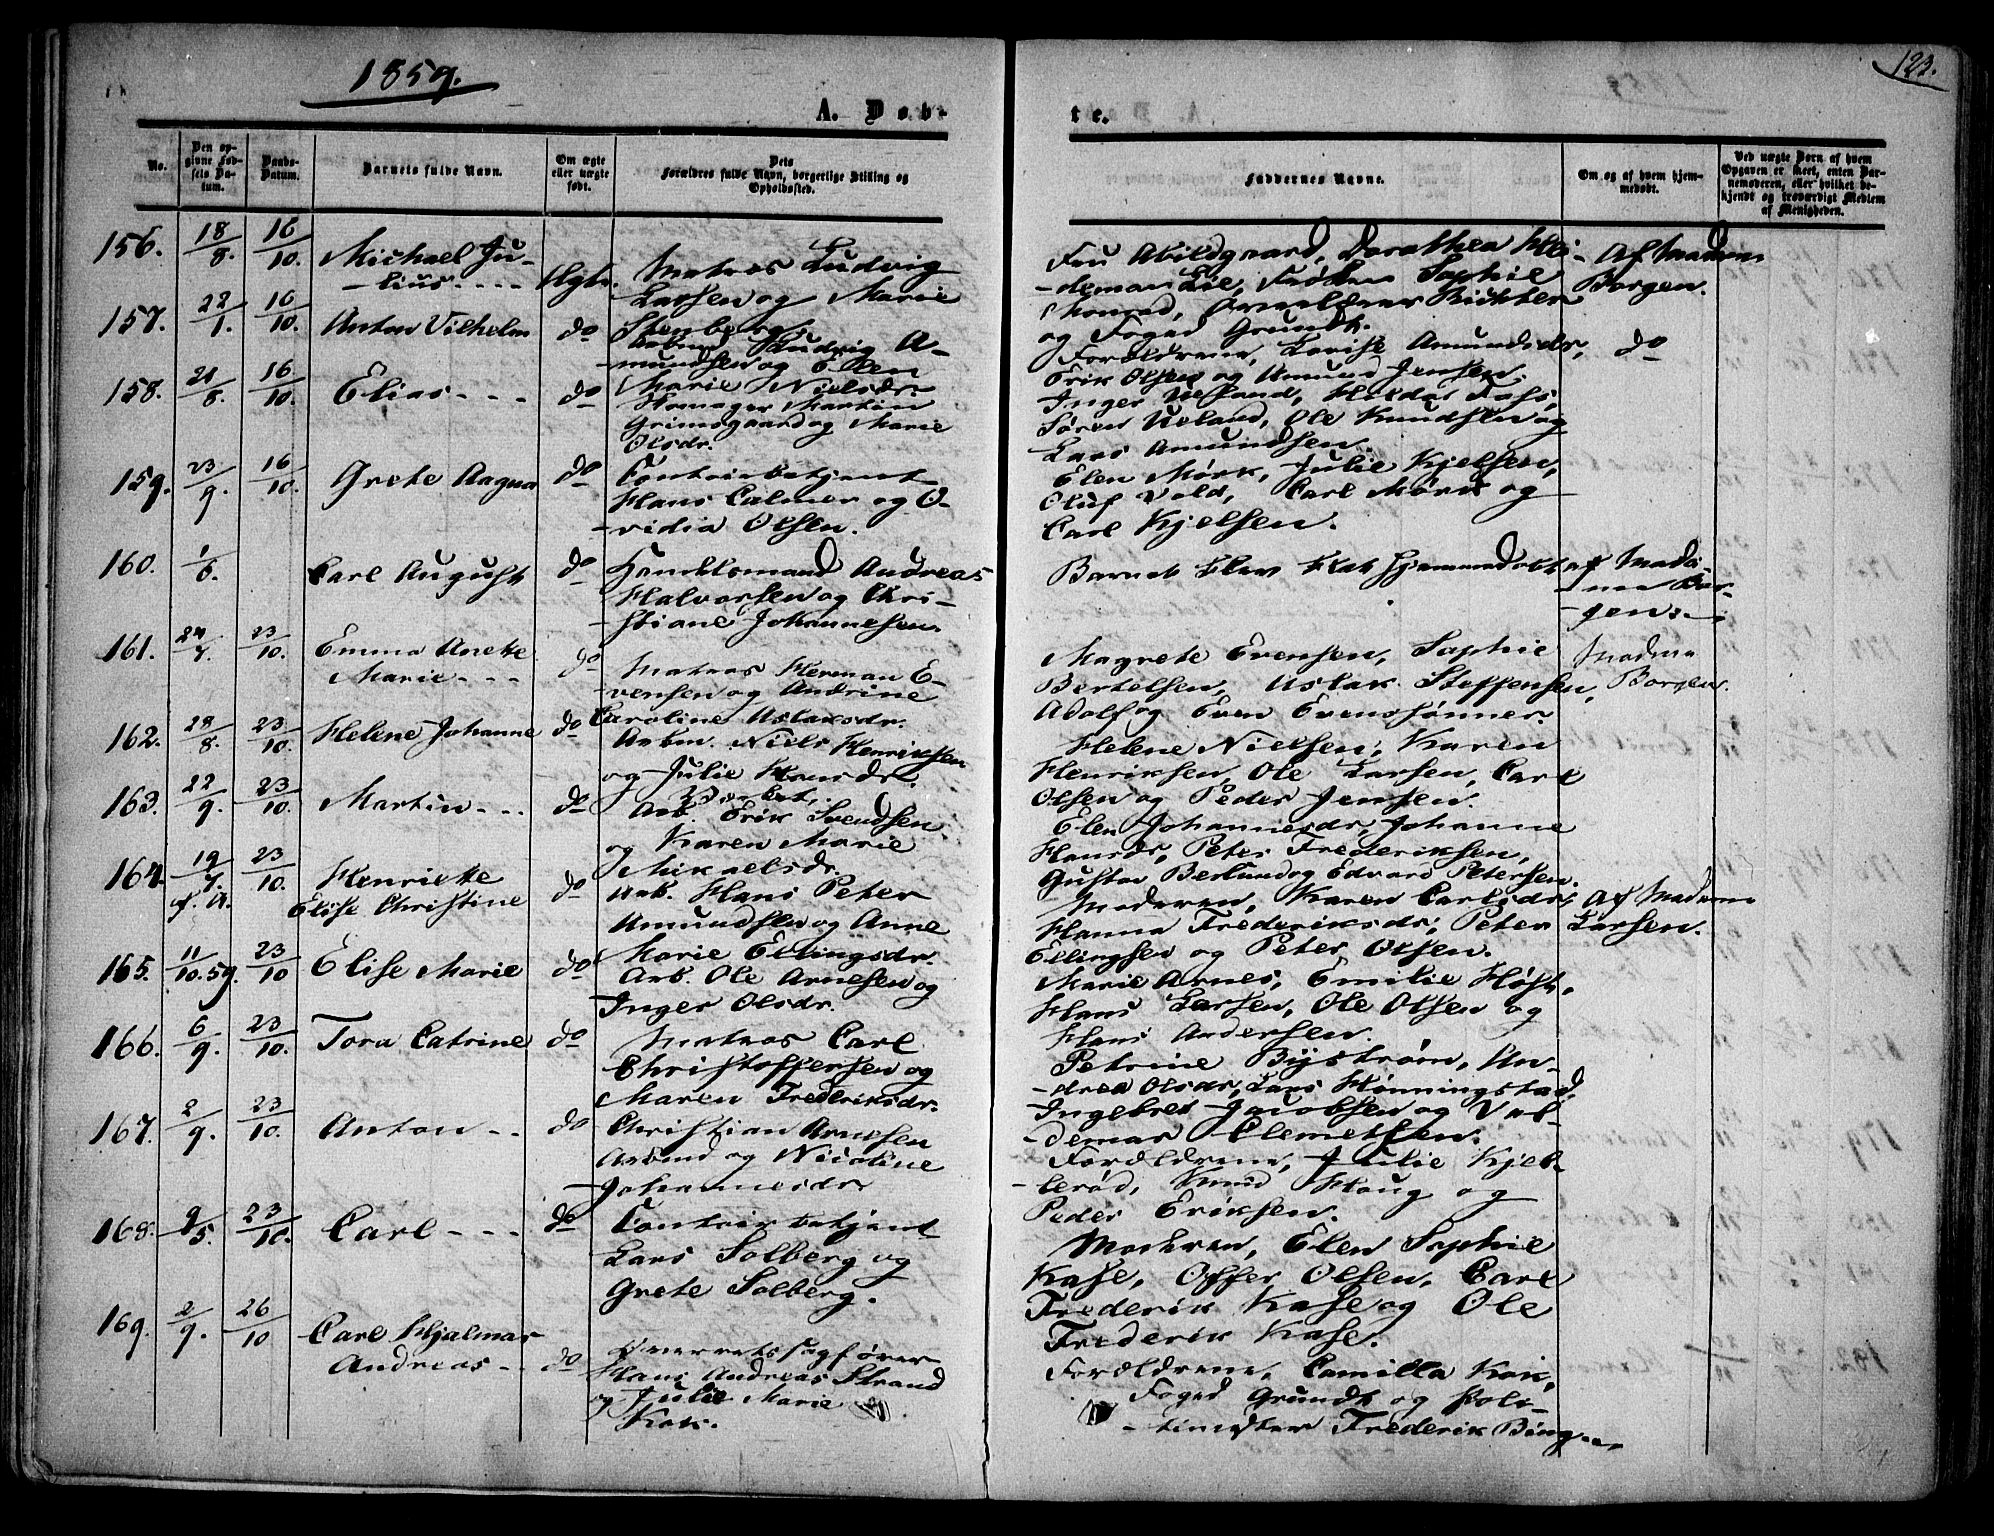 1859.
123.
A. Døb-
te.
No.
Den op-
givne Fød-
sels Da-
tum.
Daabs-
Datum.
Barnets fulde Navn.
Om ægte
eller uægte
født.
Dets
Forældres fulde Navn, borgerlige Stilling og
Opholdssted.
Faddernes Navne.
Om og af hvem hjem-
medøbt.
Ved uægte Børn af hvem
Opgaven er skeet, enten Bar-
nemoderen, eller hvilket be-
kjendt og troværdigt Medlem
af Menigheden.
156. 18/8. 16/10. Michael Ju-
-lius Ægte. Matros Ludvig
Larsen og Marie
Stenberg.
Fru Abildgaard, Dorothea Hei-
-deman Lie, Frøken Sophie
Konrad, Richter
og Foged Grundt.
Af Madam
Borgen.
157. 22/1. 16/10. Anton Vilhelm do
Arbmd Ludvig A-
mundsen og Elen
Marie Nielsdr.
Forældrene, Lovise Amundsdr,
Erik Olsen og Amund Jensen.
do
158. 21/8. 16/10. Elias do
Martin
Grimsgaard og Marie
Olsdr.
Inger Ueland,
Søren Ueland, Ole Knudsen og
Lars Amundsen.
159. 23/9. 16/10. Grete Aagna do
Contoirbetjent
Hans Calmer og O-
-vidia Olsen.
Elen Mørk, Julie Kjelsen,
Oluf Vold, Carl Mørk og
Carl Kjelsen.
160. 1/6. Carl August do
Handelsmand Andreas
Halvorsen og Chri-
-stiane Johannesen
Barnet blev kun hjemmedøbt af Mada-
-me Bor-
-gen.
161. 24/7. 23/10. Emma Anette
Marie do
Matros Herman E-
-vensen og Andrine
Caroline Aslaksdr.
Magrete Evensen, Sophie
Bertelsen, Aslak Steffensen,
Adolf og Even Evenssønner.
Madme
Borgen.
162. 28/8. 23/10. Helene Johanne do
Arbm. Niels Henriksen
og Julie Hansdr.
Helene Nielsen, Karen
Henriksen, Ole Larsen, Carl
Olsen og Peder Jensen.
163. 22/9. 23/10. Martin do
Arb. Erik Svendsen
og Karen Marie
Mikaelsdr.
Elen Johannesdr, Johanne
Hansdr, Peter Frederiksen,
Gustav Berlund og Edvard Petersen.
164. 19/7. f. A. 23/10. Henriette
Elise Christine do
Arb. Hans Peter
Amundsen og Anne
Marie Ellingsdr.
Moderen, Karen Carlsdr,
Hanna Frederiksdr, Peter
Ellingsen og Peter Olsen.
Af Madame
Larsen.
165. 11/10.59. 23/10 Elise Marie do
Arb. Ole Arnesen og
Inger Olsdr.
Marie Arnes, Emilie Høst,
Hans Larsen, Ole Olsen og
Hans Andersen.
166. 6/9. 23/10. Tora Catrine do
Matros Carl
Christoffersen og
Maren Frederiksdr.
Petrine Byström, An-
-drea Olsdr, Lars Hønningstad,
Ingebret Jacobsen og Val-
-demar Clemetsen.
167. 2/9. 23/10. Anton do
Christian Arnesen
Arbmd og Nicoline
Johannesdr.
Forældrene, Julie Kjel-
-lerød, Knud Haug og
Peder Eriksen.
168. 9/5. 23/10. Carl do
Contoirbetjent
Lars Solberg og
Grete Solberg.
Modren, Elen Sophie
Kase, Offer Olsen, Carl
Frederik Kase og Ole
Frederik Kase.
169. 2/9. 26/10 Carl Hjalmar
Andreas do
Overretssagfører
Hans Andreas Strand
og Julie Marie
Kok.
Forældrene, Camilla Kok,
Foged Grundt og Poli-
-timester Frederik